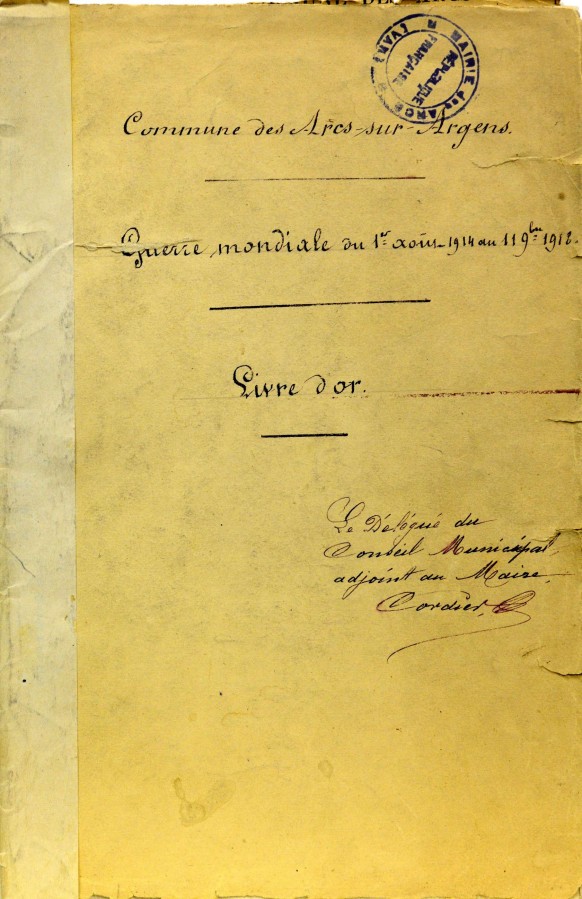 MAIRIE des ARCS (VAR)
RÉPUBLIQUE
FRANÇAISE
Commune des Arcs-sur-Argens.
Guerre mondiale du 1er août 1914 au 11 9bre 1918.
Livre d'or.
Le Délégué du
Conseil Municipal,
adjoint au Maire,
Cordier